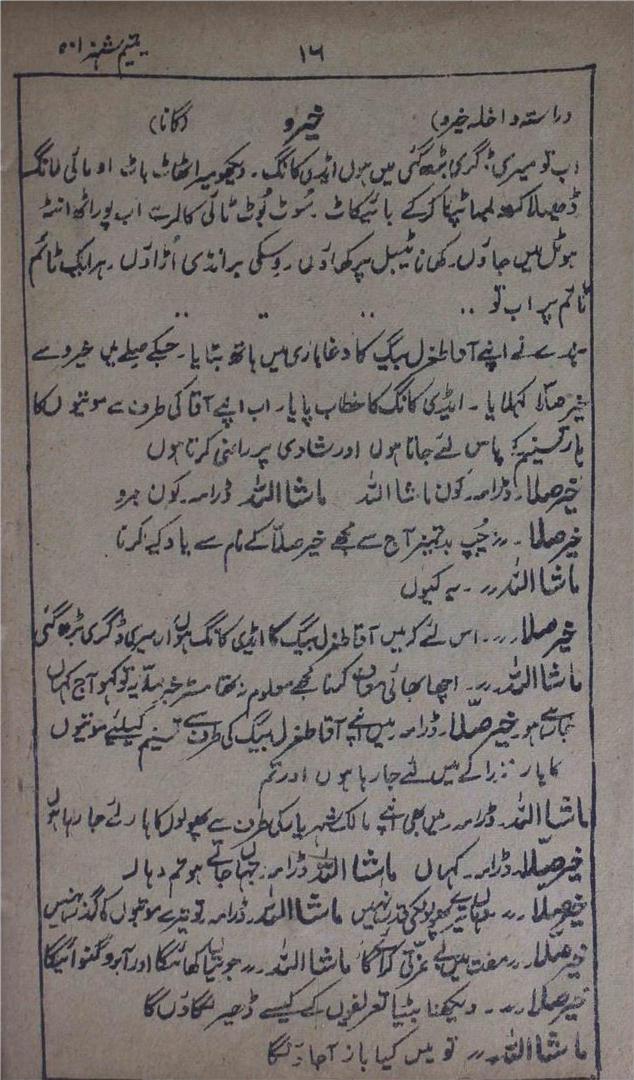 ۱۶ یتیم شہزادہ
(راستہ داخلہ خیرو) خیرو (گانا)
اب تو میری ڈگری بڑھ گئی میں ہوں ایڈی کانگ۔ دیکھو میرا ٹھاٹ باٹ او مائی لانگ
کرکے بائیکاٹ۔ سُوٹ بُوٹ ٹائی کالر ہے اب پورا
ہوٹل میں جاؤں۔ کھانا ٹیبل پر کھاؤں۔ وسکی برانڈی اُڑاؤں۔ ہر ایک ٹائم
ٹائم پر اب تو ..
نے اپنے آقا طغرل بیگ کا دغا بازی میں ہاتھ بٹایا۔ جسکے صلے میں خیرو سے
خیر صلّا کہلایا۔ ایڈی کانگ کا خطاب پایا۔ اب اپنے آقا کی طرف سے موتیوں کا
ہار تسنیم کے پاس لئے جاتا ہوں اور شادی پر راضی کرتا ہوں
خیر صلا۔ ڈرامہ۔ کون ماشااللہ ماشااللہ ڈرامہ۔ کون خیرو
خیر صلا۔ 〃 چُپ بدتمیز آج سے مجھے خیر صلّا کے نام سے یاد کیا کرنا
ماشااللہ 〃۔ یہ کیوں
خیر صلا 〃۔ اس لئے کہ میں آقا طغرل بیگ کا ایڈی کانگ ہوں اور میری ڈگری بڑھ گئی
ماشااللہ 〃۔ اچھا بھائی معاف کرنا مجھے معلوم نہ تھا مسٹر خیر صلّا یہ تو کہو آج کہاں
جا رہے ہو۔ خیر صلّا۔ ڈرامہ۔ میں اپنے آقا طغرل بیگ کی طرف سے تسنیم کیلئے موتیوں
کا ہار نذرانے میں لئے جا رہا ہوں اور تم
ماشااللہ۔ ڈرامہ۔ میں بھی اپنے مالک شہریار کی طرف سے پھولوں کا ہار لئے جا رہا ہوں
خیر صلّا۔ ڈرامہ۔ کہاں ماشااللہ ڈرامہ۔ جہاں جاتے ہو تم وہاں
خیر صلا 〃 وہاں تیرے پھولوں کی قدر نہیں ماشااللہ۔ ڈرامہ۔ تو تیرے موتیوں کا گذر نہیں
خیر صلّا۔ 〃 مفت میں بے عزتی کرائے گا ماشااللہ۔ 〃 جوتیاں کھائیگا اور آبرو گنوائیگا
خیر صلا 〃۔ دیکھنا بیٹا تعریفوں کے کیسے ڈھیر لگا دوں گا
ماشااللہ 〃 تو میں کیا باز آجاؤنگا